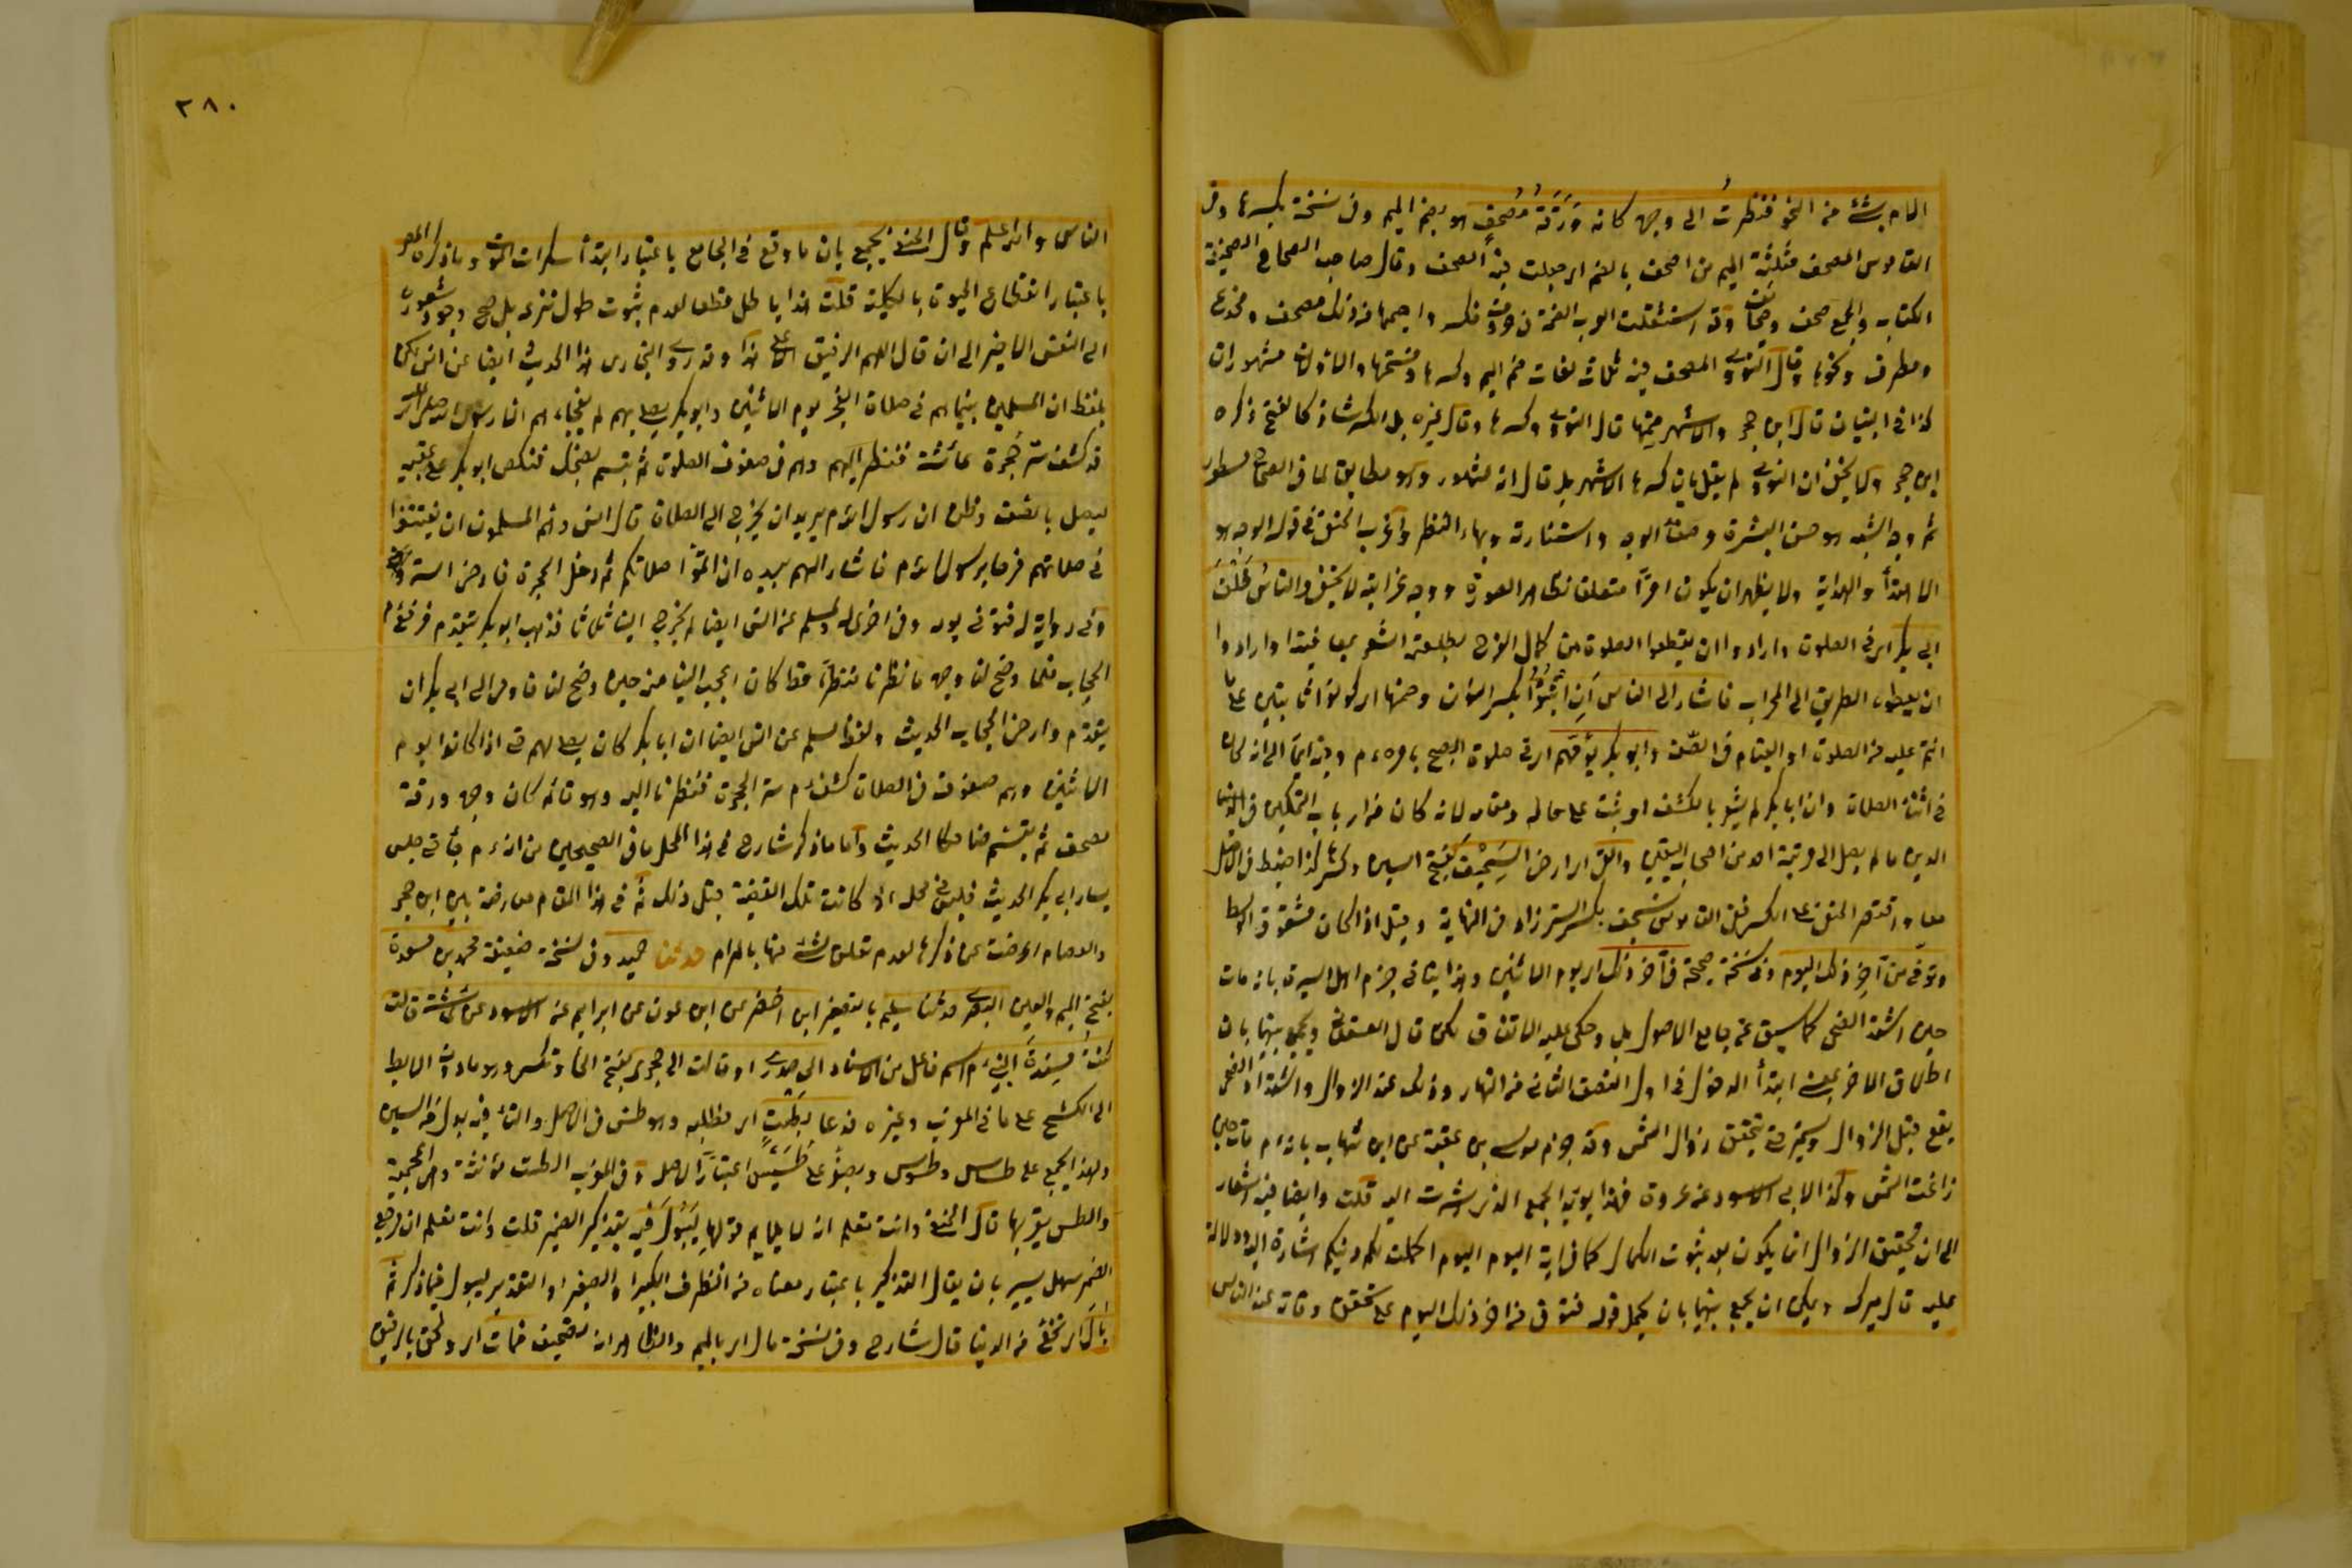 الامام بشئ من النحو فنظرت الى وجهه كانه وَرَقَةُ مُصْحَفٍ هو بضم الميم وفى نسخة بكسرها وفى
القاموس المصحف مثلثة الميم من اصحف بالضم اى جعلت فيه الصحف وقال صاحب الصحاح الصحيفة
الكتاب والجمع صحف وصحائف وقد استثقلت العرب الضمة فى حروف فكسروا ميمها من ذلك مصحف ومخدع
ومطرف ونحوها وقال النووى المصحف فيه ثلاث لغات ضم الميم وكسرها وفتحها والاولان مشهوران
كذا فى التبيان قال ابن حجر والاشهر ضمها قال النووى وكسرها وقال غيره بل الكسر شاذ كالفتح ذكره
ابن حجر ولا يخفى ان النووى لم يقل بان كسرها الاشهر بل قال انه مشهور وهو مطابق لما فى الصحاح مسطور
ثم وجه الشبه هو حسن البشرة وصفاء الوجه واستنارته وبهاء النظر واغرب الحنفى فى قوله الوجه هو
الاهتداء والهداية ولا يظهر ان يكون امرا متعلقا بظاهر الصورة ووجه غرابته لا يخفى والناسُ خَلْفَ
ابى بكر اى فى الصلوة وارادوا ان يقطعوا الصلوة من كمال الفرح بطلعته وارادوا
ان يعطوه الطريق الى المحراب فاشار الى الناس اَنِ اثْبُتُوْا بكسر النون وضمها اى كونوا ثابتين على ما
انتم عليه من الصلوة او القيام فى الصف وابو بكر يؤمّهم اى فى صلوة الصبح بامره عم وفيه ايماء الى انه كان
فى اثناء الصلاة وان ابا بكر لم يشعر بالكشف او ثبت على حاله ومقامه لانه كان من ارباب التمكين فى
الدين ما لم يصل الى مرتبة احد من اصحاب اليقين والقى اى ارخى السِّجْفَ بفتح السين وكسرها كذا ضبط فى الاصل
معا واقتصر الحنفى على الكسر ففى القاموس السجف بكسر الستر زاد فى النهاية وقيل اذا كان مشقوق الوسط
وتوفى من آخِرِ ذلك اليوم وفى نسخة صحيحة فى آخر ذلك اى يوم الاثنين وهذا ينافى جزم اهل السير بانه مات
حين اشتد الضحى كما سبق عن جامع الاصول بل وحكى عليه الاتفاق لكن قال العسقلانى ويجمع بينهما بان
اطلاق الاخر بمعنى ابتداء الدخول فى اول النصف الثانى من النهار وذلك عند الزوال واشتداد الضحى
يقع قبل الزوال ويستمر حتى يتحقق زوال الشمس وقد جزم موسى بن عقبة عن ابن شهاب بانه عم مات حين
زاغت الشمس وكذا لابى الاسود عن عروة فهذا يؤيد الجمع الذى اشرت اليه قلت وايضا فيه اشعار
الى ان تحقيق الزوال انما يكون بعد ثبوت الكمال كما فى اية اليوم اكملت لكم دينكم اشارة اليه ودلالة
عليه قال ميرك ويمكن ان يجمع بينهما بان يحمل قوله فتوفى من اخر ذلك اليوم على تحقق وفاته عند الناس
٢٨٠
الناس والله اعلم وقال الحنفى يجمع بان ما وقع فى الجامع باعتبار ابتداء سكرات الموت وما ذكره المص
باعتبار انقطاع الحيوة بالكلية قلت هذا باطل قطعا لعدم ثبوت طول نزعه بل صح وجود شعوره
الى النفس الاخير الى ان قال اللهم الرفيق الاعلى هذا وقد روى البخارى هذا الحديث ايضا عن انس لكن
بلفظ ان المسلمين بينما هم فى صلاة الفجر يوم الاثنين وابو بكر يصلى بهم لم يفجأهم الا رسول الله صلى الله
قد كشف ستر حجرة عائشة فنظر اليهم وهم فى صفوف الصلوة ثم تبسم يضحك فنكص ابو بكر على عقبيه
ليصل بالصف وظن ان رسول الله عم يريد ان يخرج الى الصلاة قال انس وهم المسلمون ان يفتتنوا
فى صلاتهم فرحا برسول الله عم فاشار اليهم بيده ان اتموا صلاتكم ثم دخل الحجرة فارخى الستر
وفى رواية له فتوفى من يومه وفى اخرى له ولمسلم عن انس ايضا لم يخرج الينا ثلاثا فذهب ابو بكر يتقدم فرفع عم
الحجاب فلما وضح لنا وجهه ما نظرنا منظرا قط كان اعجب الينا منه حين وضح لنا فاومى الى ابى بكر ان
يتقدم وارخى الحجاب الحديث ولفظ مسلم عن انس ايضا ان ابا بكر كان يصلى لهم حتى اذا كانوا يوم
الاثنين وهم صفوف فى الصلاة كشف عم ستر الحجرة فنظرنا اليه وهو قائم كان وجهه ورقة
مصحف ثم تبسم ضاحكا الحديث واما ما ذكر شارح فى هذا المحل ما فى الصحيحين من انه عم جاء حتى جلس
يسار ابى بكر الحديث فليس فى محله اذ كانت تلك القضية قبل ذلك ثم فى هذا المقام معارضة بين ابن حجر
والعصام اعرضت عن ذكرها لعدم تعلق شئ منها بالمرام حدثنا حميد وفى نسخة ضعيفة محمد بن مسعدة
بفتح الميم والعين البصرى حدثنا سليم بالتصغير ابن اخضر عن ابن عون عن ابراهيم عن الاسود عن عائشة قالت
كنتُ مُسْنِدَةً النبىَّ عم اسم فاعل من الاسناد الى صدرى او قالت الى حجرى بفتح الحاء وتكسر وهو ما دون الابط
الى الكشح على ما فى المغرب وغيره فدعا بِطَسْتٍ اى بطلبه وهو طس فى الاصل والتاء فيه بدل من السين
ولهذا يجمع على طساس وطسوس ويصغر على طُسَيْس اعتبارا لاصله وفى المغرب الطست مؤنثة وهى اعجمية
والطس تعريبها قال الحنفى وانت تعلم انه لا يلائم قولها لِيَبُولَ فيه بتذكير الضمير قلت وانت تعلم ان مرجع
الضمير سهل يسير بان يقال التذكير باعتبار معناه من الظرف الكبير او الصغير او التقدير ليبول فيما ذكر ثم
بَالَ اى تنحى من الدنيا قال شارح وفى نسخة مال اى بالميم والظاهر انه تصحيف فمات اى ولحق بالرفيق